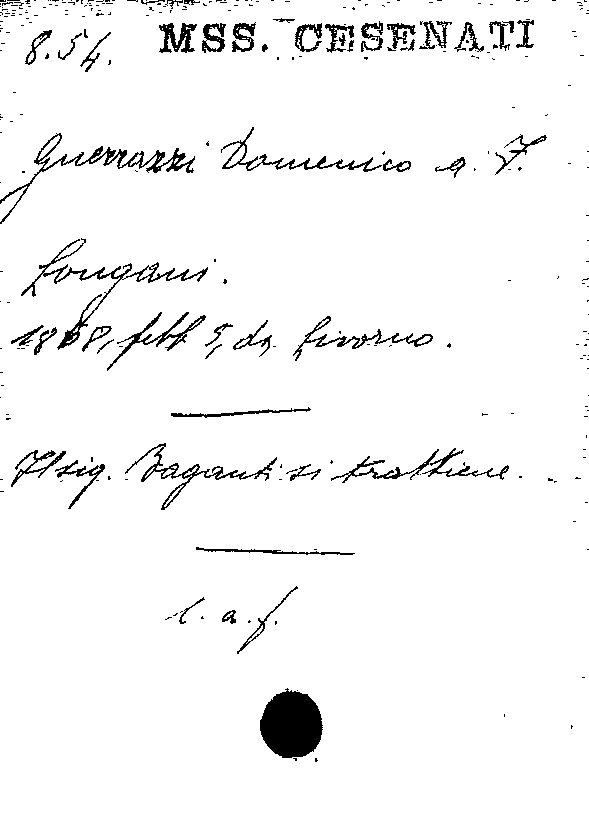 8.54. MSS. CESENATI
Guerrazzi Domenico a F.
Longani.
1868, febb 5, da Livorno.
Il sig. Baganti si trattiene.
l. a. f.